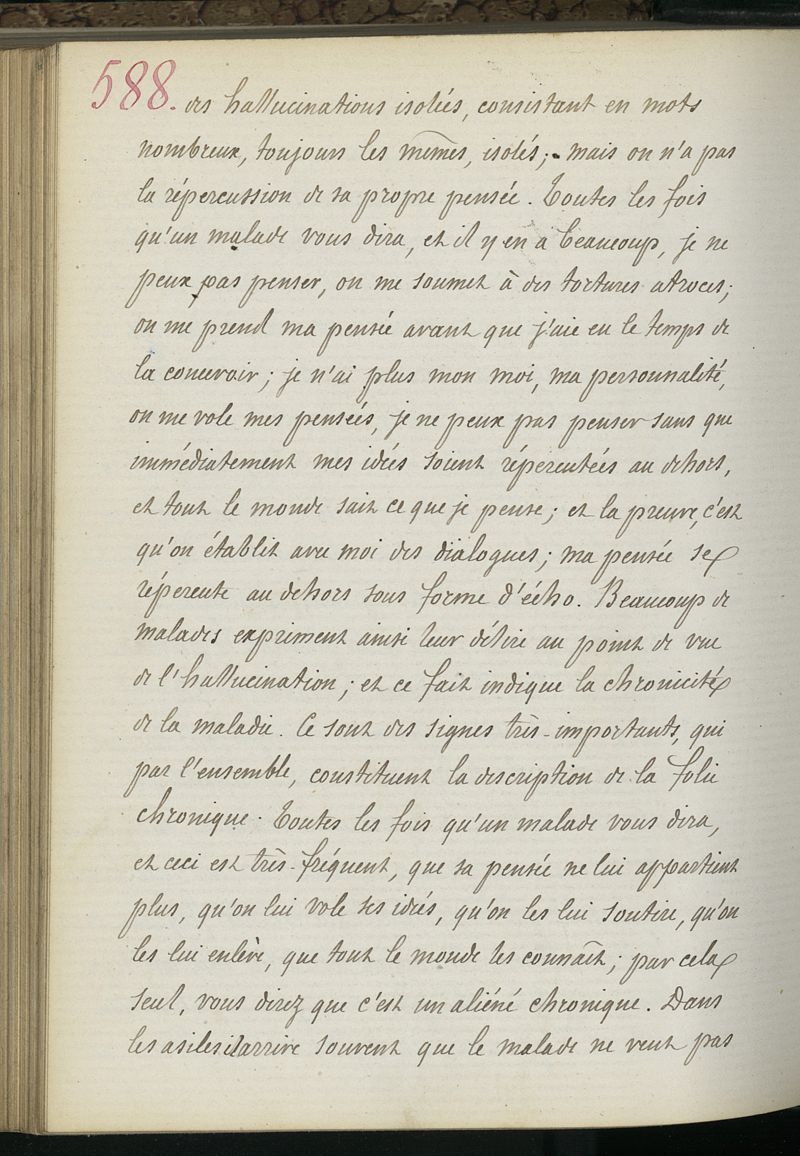 588. des hallucinations isolées, consistant en mots
nombreux, toujours les mêmes, isolés; - mais on n'a pas
la répercussion de sa propre pensée. Toutes les fois
qu'un malade vous dira, et il y en a beaucoup, je ne
peux pas penser, on me soumet à des tortures atroces;
on me prend ma pensée avant que j'aie eu le temps de
la concevoir; je n'ai plus mon moi, ma personnalité,
on me vole mes pensées, je ne peux pas penser sans que
immédiatement mes idées soient répercutées au dehors,
et tout le monde sait ce que je pense; et la preuve, c'est
qu'on établit avec moi des dialogues; ma pensée se
répercute au dehors sous forme d'écho. Beaucoup de
malades expriment ainsi leur délire au point de vue
de l'hallucination; et ce fait indique la chronicité
de la maladie. Ce sont des signes très-importants, qui
par l'ensemble, constituent la description de la folie
chronique. Toutes les fois qu'un malade vous dira,
et ceci est très-fréquent, que sa pensée ne lui appartient
plus, qu'on lui vole ses idées, qu'on les lui soutire, qu'on
les lui enlève, que tout le monde les connaît; par cela
seul, vous direz que c'est un aliéné chronique. Dans
les asiles il arrive souvent que le malade ne veut pas